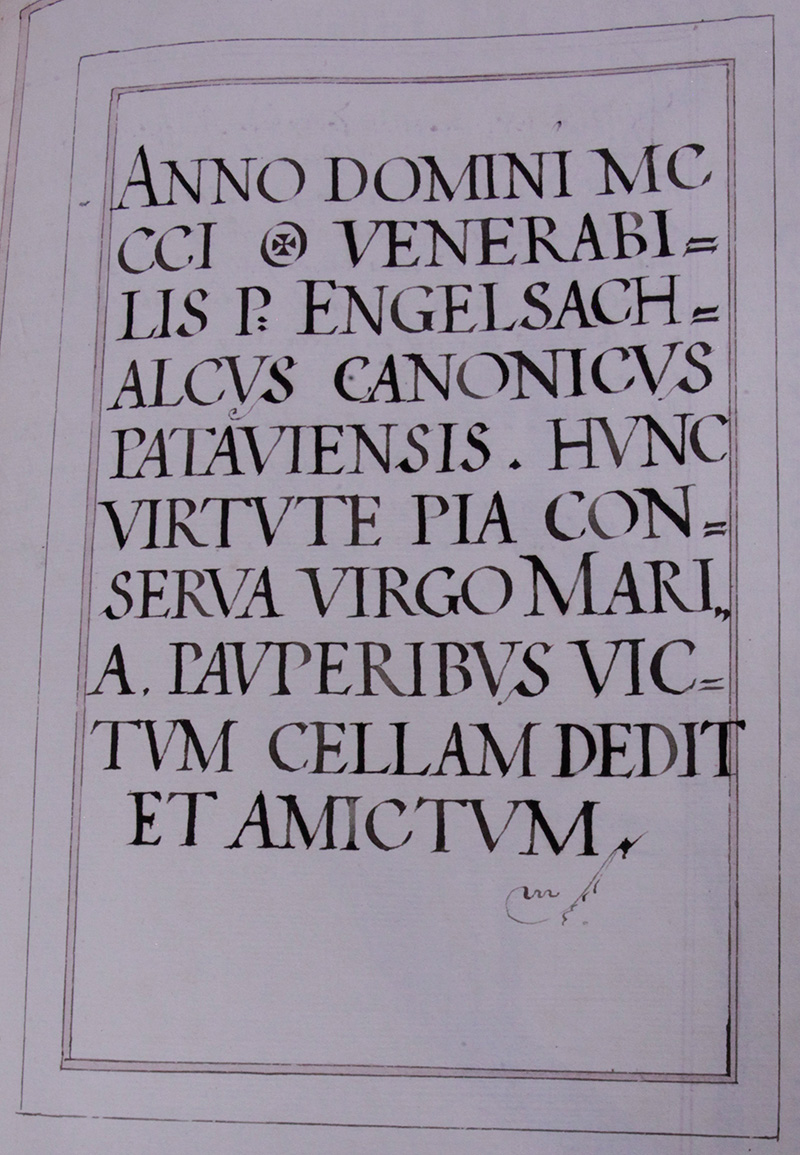 ANNO DOMINI MC
CCI ✠ VENERABI=
LIS P: ENGELSACH=
ALCVS CANONICVS
PATAVIENSIS . HVNC
VIRTVTE PIA CON=
SERVA VIRGO MARI„
A. PAVPERIBVS VIC=
TVM CELLAM DEDIT
ET AMICTVM.